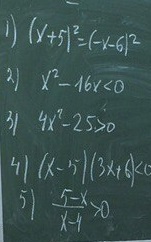 1) (x+5)²=(-x-6)²
2) x²-16x<0
3) 4x²-25>0
4) (x-5)(3x+6)<0
5) (5-x)/(x-4)>0